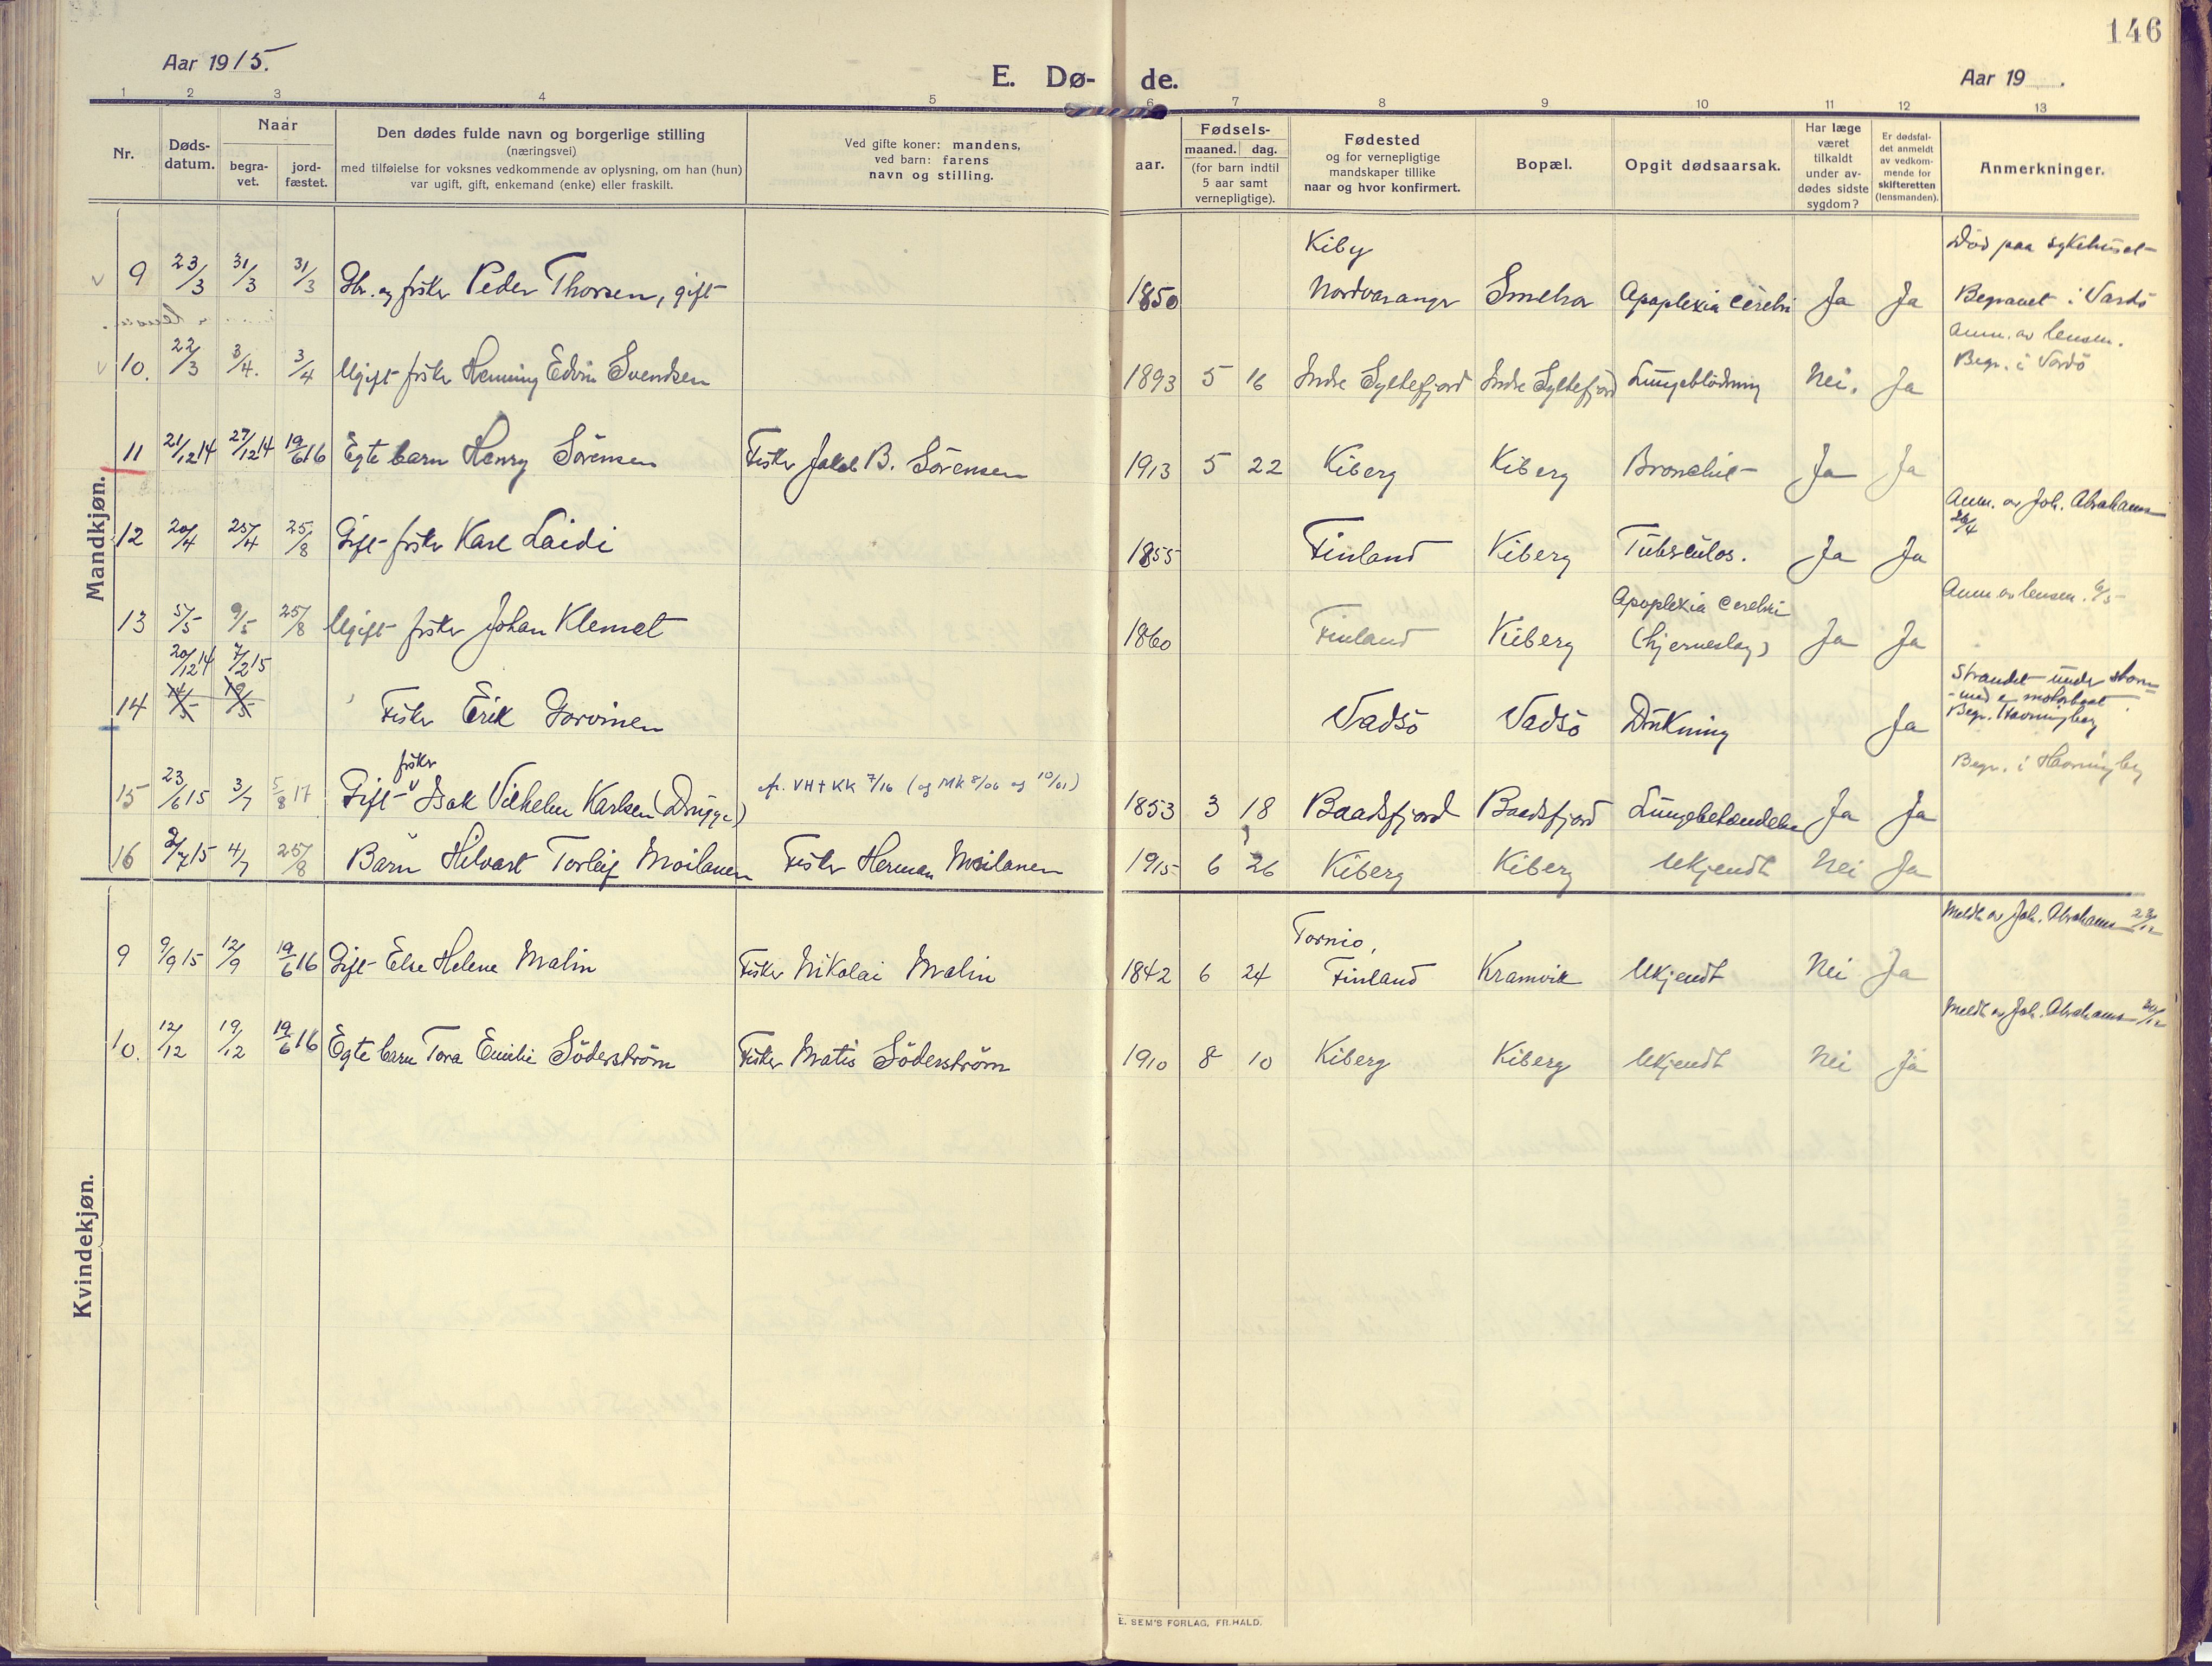 146
Aar 1915.
E. Dø- de.
Aar 19
1 2 3 4 5 6 7 8 9 10 11 12 13
Nr.
Døds-
datum.
Naar
begra-
vet.
jord-
fæstet.
Den dødes fulde navn og borgerlige stilling
(næringsvei)
med tilføielse for voksnes vedkommende av oplysning, om han (hun)
var ugift, gift, enkemand (enke) eller fraskilt.
Ved gifte koner: mandens,
ved barn: farens
navn og stilling.
aar.
Fødsels-
maaned. dag.
(for barn indtil
5 aar samt
vernepligtige).
Fødested
og for vernepligtige
mandskaper tillike
naar og hvor konfirmert.
Bopæl.
Opgit dødsaarsak.
Har læge
været
tilkaldt
under av-
dødes sidste
sygdom?
Er dødsfal-
det anmeldt
av vedkom-
mende for
skifteretten
(lensmanden).
Anmerkninger.
Mandkjøn.
Kiby
Død paa sykehuset
9 23/3 31/3 31/3 Gbr. og fisker Peder Thorsen, gift 1850 Nordvaranger Smelror Apoplexia cerebri Ja Ja Begravet i Vardö
Anm. av lensm.
10. 22/3 3/4. 3/4 Ugift fisker Henning Edvin Svendsen 1893 5 16 Indre Syltefjord Indre Syltefjord Lungeblödning Nei. Ja Begr. i Vardö
11 21/12 14 27/12 14 19/6 16 Egte barn Henry Sörensen Fisker Jakob B. Sörensen 1913 5 22 Kiberg Kiberg Bronchit Ja Ja
Anm. av Joh. Abrahams
12 20/4 25/4 25/8 Gift fisker Karl Laidi 1855 Finland Kiberg Tuberculos. Ja Ja
Anm. av lensm. 6/5
Apoplexia cerebri
13 5/5 9/5 25/8 Ugift fisker Johan Klemet 1860 Finland Kiberg (hjerneslag) Ja Ja
20/12 14 7/2 15
Strandet under storm
med en motorbaat.
14 Fisker Erik Gorvinen Vadsö Vadsö Drukning Ja Begr. Havningberg
fisker
Begr. i Havningberg
15 23/6 15 3/7 5/8 17 Gift Isak Vilhelm Karlsen (Drugge) cfr. VH + KK 7/16 (og MK 8/06 og 10/01) 1853 3 18 Baadsfjord Baadsfjord Lungebetændelse Ja Ja
16 2/7 15 4/7 25/8 Barn Hilvart Torleif Moilanen Fisker Herman Moilanen 1915 6 26 Kiberg Kiberg Ukjendt Nei Ja
Kvindekjøn.
Meldt av Joh. Abrahams
Tornio,
9 9/9 15 12/9 19/6 16 Gift Else Helene Malin Fisker Nikolai Malin 1842 6 24 Finland Kramvik Ukjendt Nei Ja
Meldt av Joh. Abrahams
10. 12/12 19/12 19/6 16 Egte barn Tora Emilie Söderström Fisker Matis Söderström 1910 8 10 Kiberg Kiberg Ukjendt Nei Ja
E. SEM'S FORLAG, FR.HALD.